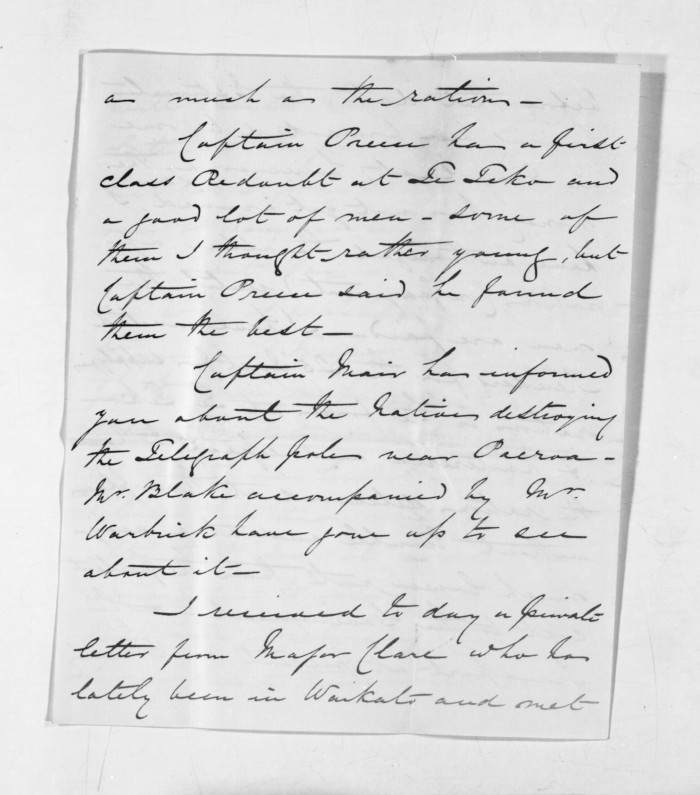 as much as the rations —
Captain Preece has a first
class Redoubt at Te Teko and
a good lot of men - some of
them I thought rather young, but
Captain Preece said he found
them the best —
Captain Mair has informed
you about the Natives destroying
the Telegraph poles near Paeroa -
Mr. Blake accompanied by Mr.
Warbrick have gone up to see
about it —
I received to day a private
letter from Major Clare who has
lately been in Waikato and met